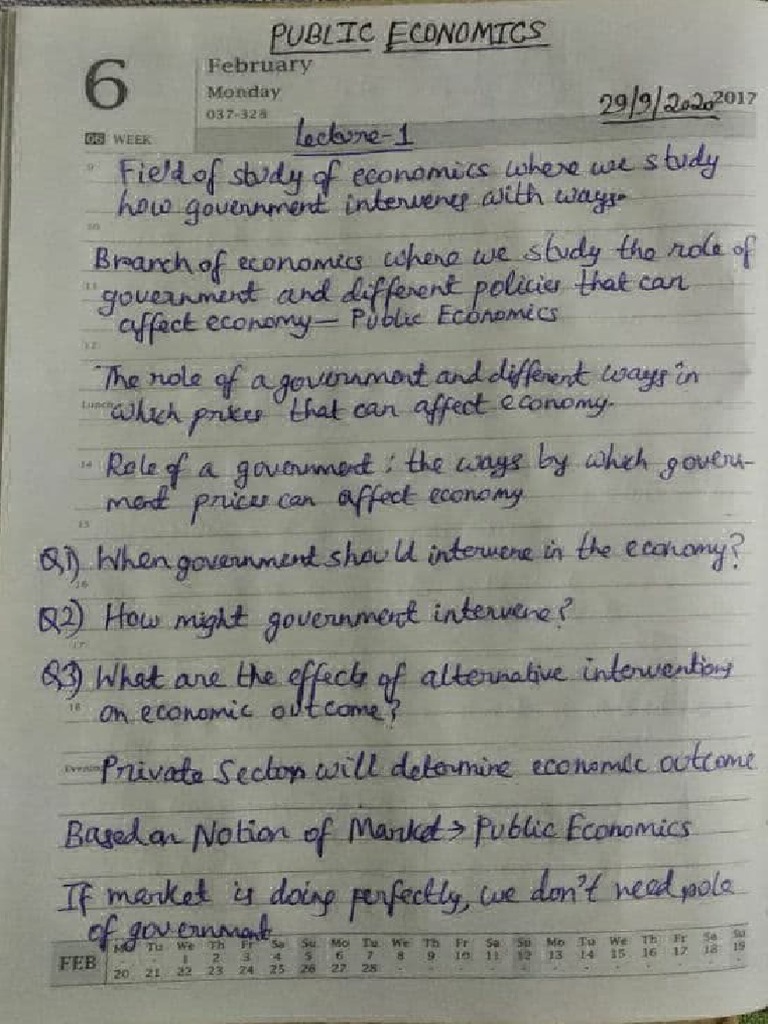 PUBLIC ECONOMICS
6
February
Monday
037-328
06 WEEK
29/9/2020 2017
Lecture-1
9
Field of study of economics where we study
how government intervenes with ways.
10
Branch of economics where we study the role of
11
government and different policies that can
affect economy — Public Economics
12
The role of a government and different ways in
Lunch
which prices that can affect economy.
14
Role of a government : the ways by which govern-
ment prices can affect economy
15
Q,1) When government should intervene in the economy?
16
Q2) How might government intervene?
17
Q,3) What are the effects of alternative interventions
18
on economic outcome?
Evening
Private Sector will determine economic outcome
Based on Notion of Market > Public Economics
If market is doing perfectly, we don't need role
of government
FEB
Mo Tu We Th Fr Sa Su Mo Tu We Th Fr Sa Su Mo Tu We Th Fr Sa Su
. . 1 2 3 4 5 6 7 8 9 10 11 12 13 14 15 16 17 18 19
20 21 22 23 24 25 26 27 28 . . . . . . . . . . . .